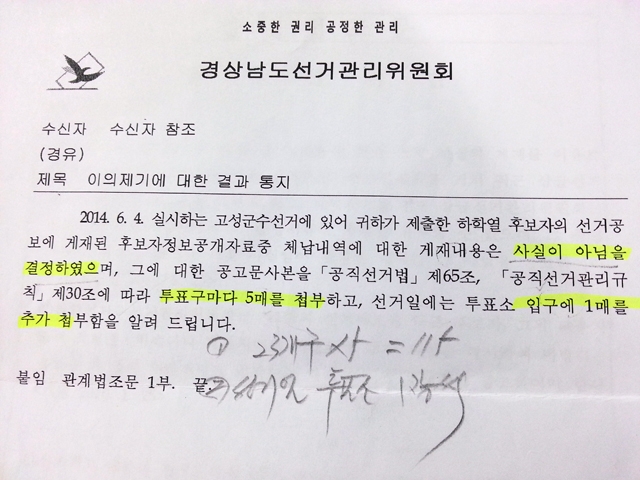 소중한 권리 공정한 관리
경상남도선거관리위원회
수신자 수신자 참조
(경유)
제목 이의제기에 대한 결과 통지
2014. 6. 4. 실시하는 고성군수선거에 있어 귀하가 제출한 하학열 후보자의 선거공
보에 게재된 후보자정보공개자료중 체납내역에 대한 게재내용은 사실이 아님을
결정하였으며, 그에 대한 공고문사본을 「공직선거법」 제65조, 「공직선거관리규
칙」 제30조에 따라 투표구마다 5매를 첩부하고, 선거일에는 투표소 입구에 1매를
추가 첩부함을 알려 드립니다.
① 23개구 =
붙임 관계법조문 1부. 끝.
② 선거일 투표소